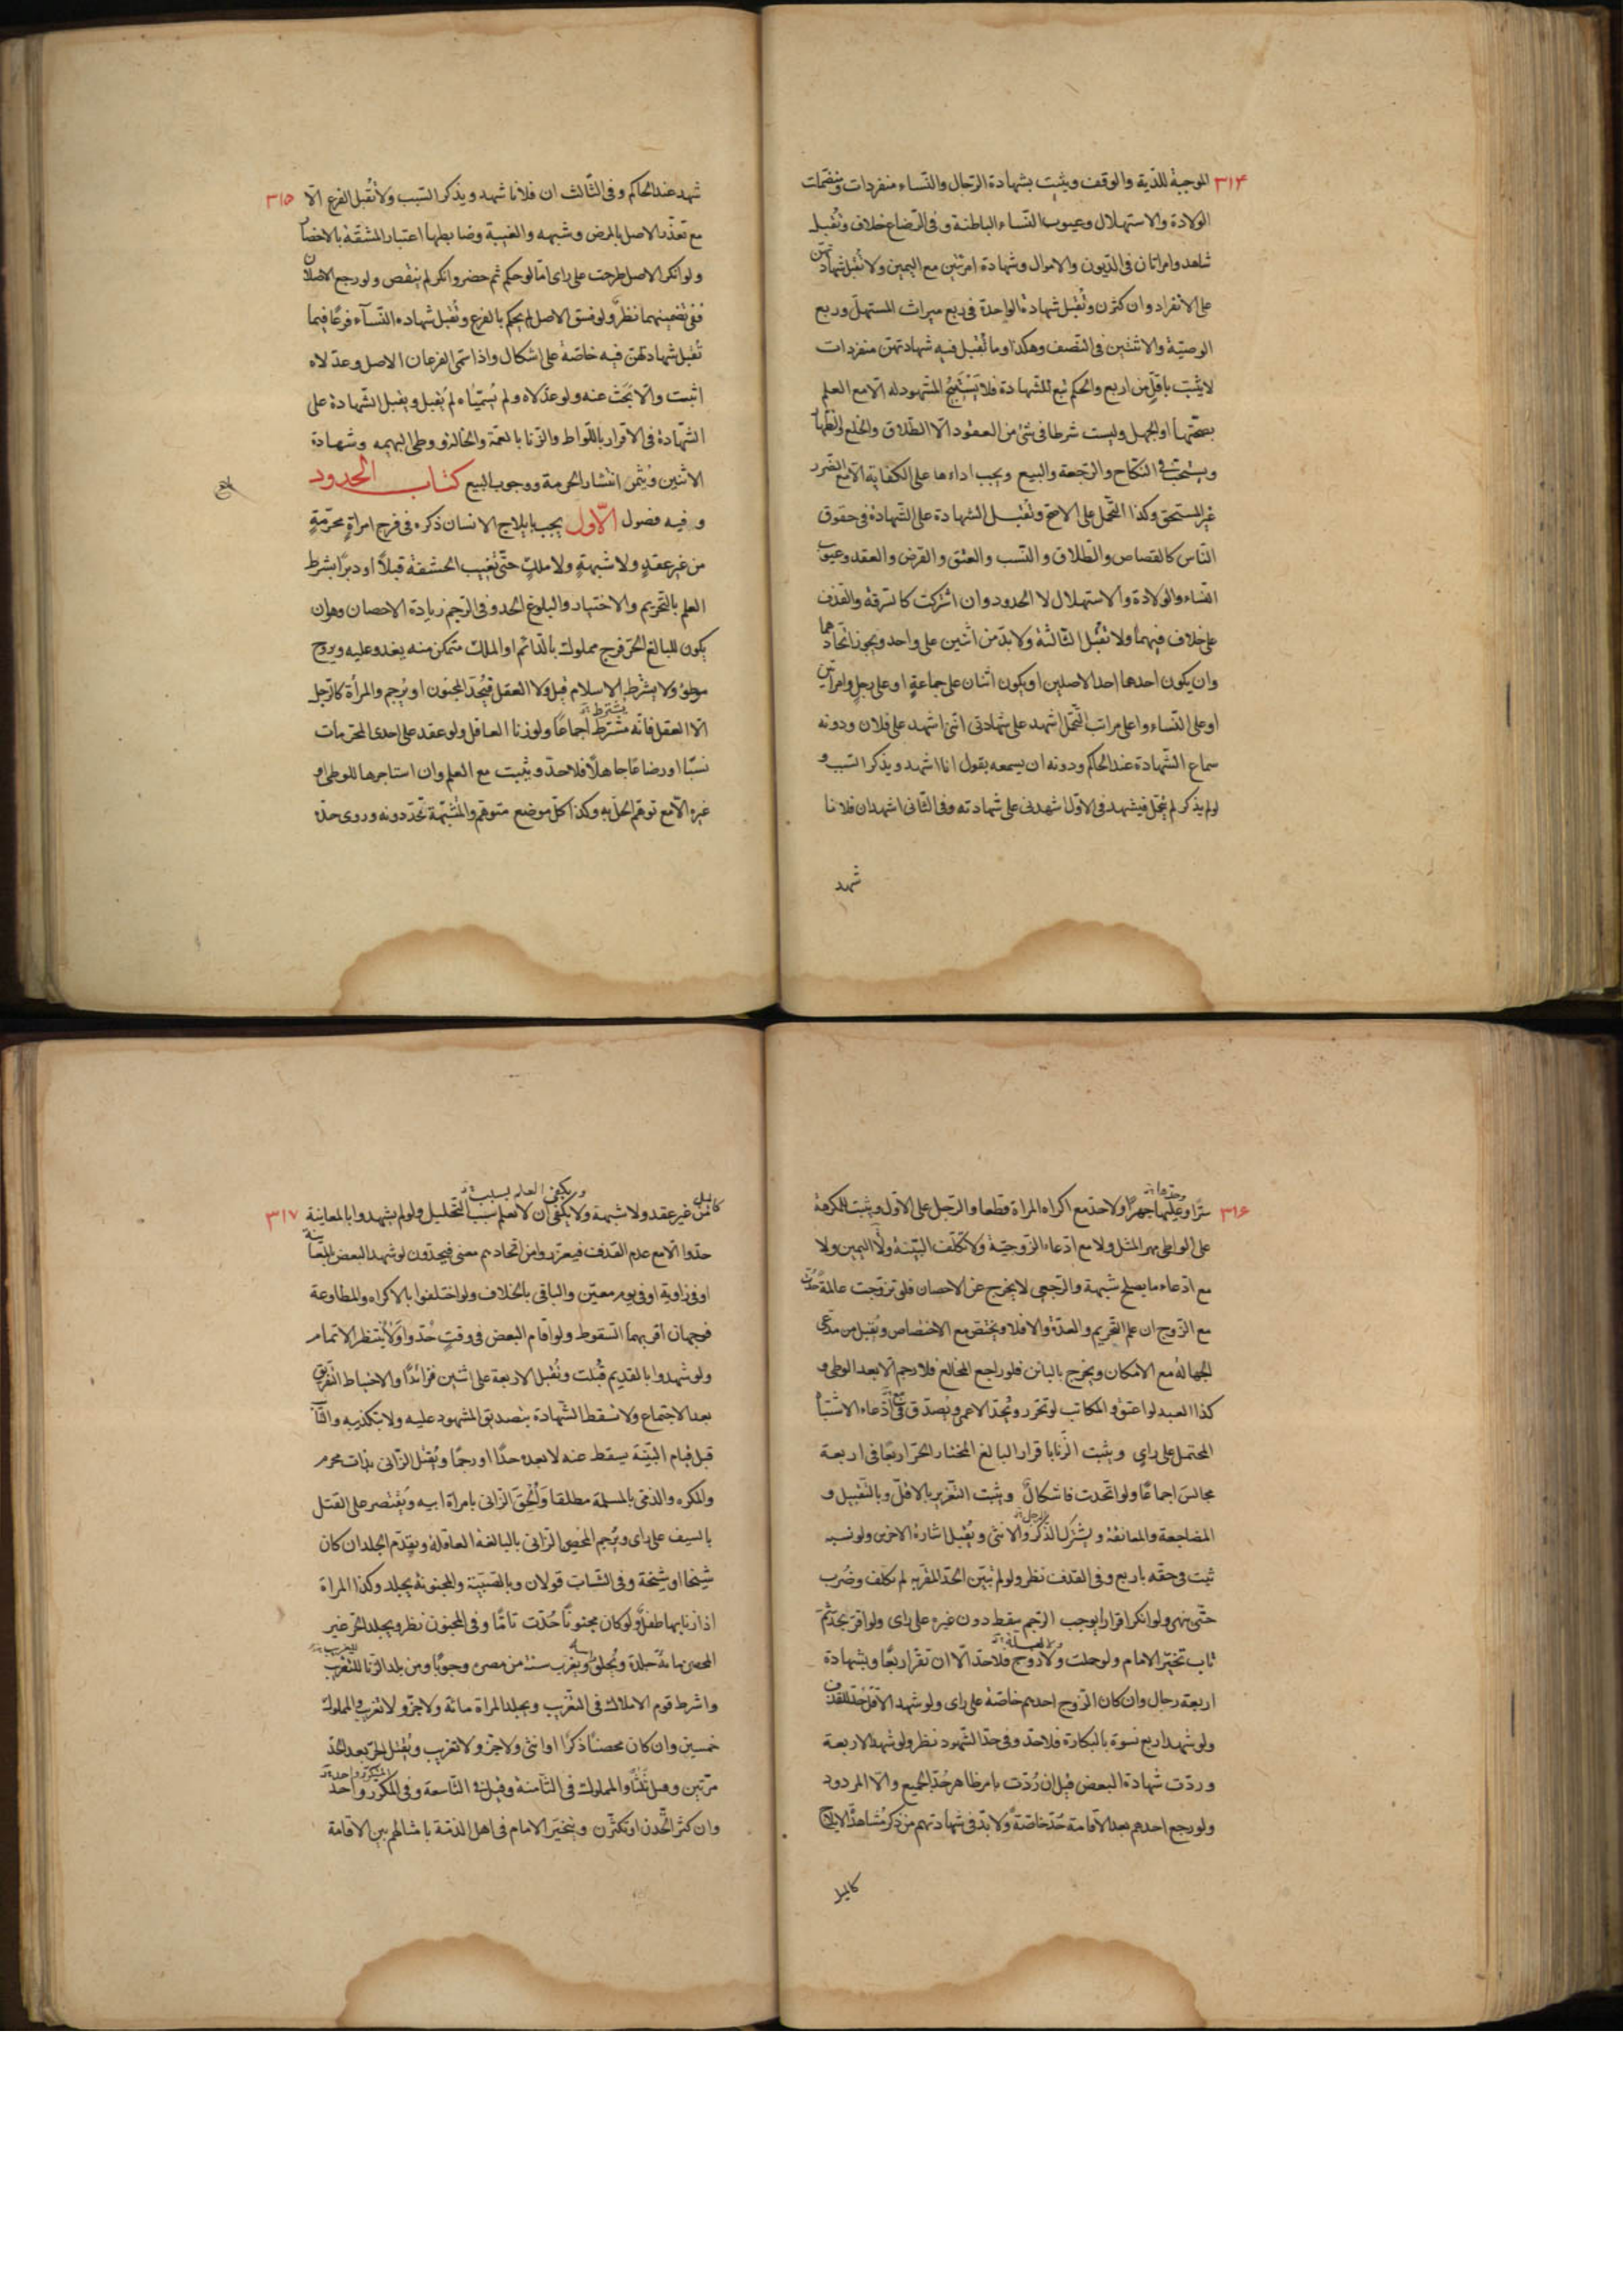 ٣١۴
الموجبة للدّية والوقف ويثبت بشهادة الرّجال والنّساء منفردات ومنضمّات
الولادة والاستهلال وعيوب النّساء الباطنة وفى الرّضاع خلاف وتُقبل
شاهد وامراتان فى الدّيون والاموال وشهادة امرئتين مع اليمين ولا تقبل شهادتهنّ
على الانفراد وان كثرن وتُقبل شهادة الواحدة فى ربع ميراث المستهلّ وربع
الوصيّة والاثنتين فى النّصف وهكذا وما تُقبل فيه شهادتهنّ منفردات
لا يثبت باقلّ من اربع والحكم تبع للشّهادة فلا يَسْتَبيحُ المشهود له الّا مع العلم
بصحّتها او الجهل وليست شرطا فى شئ من العقود الّا الطّلاق والخلع والظّهار
ويستحبّ فى النّكاح والرّجعة والبيع ويجب اداءها على الكفاية الّا مع الضّرر
غير المستحق وكذا التّحمّل على الاصحّ وتُقبل الشهادة على الشّهادة فى حقوق
النّاس كالقصاص والطّلاق والنّسب والعتق والقرض والعقد وعيوب
النّساء والولادة والاستهلال لا الحدود وان اشتركت كالسّرقة والقذف
على خلاف فيهما ولا تُقبل الثّالثة ولا بدّ من اثنين على واحد ويجوز اتّحادهما
وان يكون احدهما احد الاصلين او يكون اثنان على جماعةٍ او على رجلٍ وامراتين
او على النّساء واعلى مراتب التّحمّل اشهد على شهادتى انّنى اشهد على فلان ودونه
سماع الشّهادة عند الحاكم ودونه ان يسمعه يقول انا اشهد ويذكر السّبب و
لو لم يذكر لم يتحمّل فيشهد فى الاوّل اشهدنى على شهادته وفى الثّانى اشهد ان فلانا
شهد
٣١۵
شهد عند الحاكم وفى الثّالث ان فلانا شهد ويذكر السّبب ولا تُقبل الفرع الّا
مع تعذّر الاصل بالمرض وشبهه والغيبة وضابطها اعتبار المشقّة بالاحضار
ولو انكر الاصل طرحت على راى امّا لو حكم ثمّ حضر وانكر لم ينقض ولو رجع الاصلان
ففى تضمينهما نظر ولو فسق الاصل لم يحكم بالفرع وتُقبل شهادة النّسآء فرعًا فيما
تُقبل شهادتهنّ فيه خاصّة على اشكال واذا سمّى الفرعان الاصل وعدّلاه
اثبت والّا بَحَثَ عنه ولو عدّلاه ولم يُسمّياه لم يُقبل ويقبل الشّهادة على
الشّهادة فى الاقرار باللّواط والزّنا بالعمّة والخالة ووطى البهيمه وشهادة
الاثنين ويُثمر انتشار الحرمة ووجوب البيع كتاب الحدود
وفيه فصول الاوّل يجب بايلاج الانسان ذكره فى فرج امراةٍ محرّمةٍ
من غير عقدٍ ولا شبهةٍ ولا ملكٍ حتّى تغيب الحشفة قبلاً او دبرًا بشرط
العلم بالتّحريم والاختيار والبلوغ الحد وفى الرّجم زيادة الاحصان وهو ان
يكون للبالغ الحرّ فرج مملوك بالدّائم او الملك متمكن منه يغدو عليه ويروح
موطؤ ولا يشترط الاسلام قيل ولا العقل فيُحدّ المجنون او يُرجم والمراة كالرّجل
يشترط
الّا العقل فانّه مشترط اجماعًا ولو زنا العاقل ولو عقد على احدى المحرّمات
نسبًا او رضاعًا جاهلاً فلا حدّ ويثبت مع العلم وان استاجرها للوطى او
غيره الّا مع توهّم الحلّ به وكذا كلّ موضع متوهّم والمشبّهة تُحدّ دونه وروى حدّه
٣١۶
سرًّا وعليها جهرًا ولا حدّ مع اكراه المراة قطعا والرّجل على الاقوى ويثبت للمكرهة
على الواطى مهر المثل ولا مع ادّعاء الزّوجيّة ولا تكلّف البيّنة ولا اليمين ولا
مع ادّعاء ما يصلح شبهة والرّجعى لا يخرج عن الاحصان فلو تزوّجت عالمةً حُدّت
مع الزّوج ان علم التّحريم والعدّة والا فلا ويختصّ مع الاختصاص ويُقبل من مدّعى
الجهالة مع الامكان ويخرج بالبائن فلو راجع المخالع فلا رجم الّا بعد الوطى و
كذا العبد لو اعتق والمكاتب لو تحرّر ويُحدّ الاعمى ويُصدّق فى ادّعاء الاشتباه
المحتمل على راي ويثبت الزّنا باقرار البالغ المختار الحرّ اربعًا فى اربعة
مجالس اجماعًا ولو اتّحدت فاشكال ويثبت التّعزير بالاقلّ وبالتّقبيل و
المضاجعة والمعانقة ويشترك الذّكر والانثى ويُقبل اشارة الاخرس ولو نسبه
ثبت فى حقّه باربع وفى القذف نظر ولو لم يُبيّن الحدّ المقرّ به لم يكلّف وضُرب
حتّى ينهى ولو انكر اقراراً يوجب الرّجم سقط دون غيره على راى ولو اقرّ بحدّ ثمّ
تاب تخيّر الامام ولو حملت ولا زوج فلا حدّ الّا ان تقرّ اربعًا وبشهادة
اربعة رجال وان كان الزّوج احدهم خاصّة على راى ولو شهد الاقلّ حُدّ للقذف
ولو شهد اربع نسوة بالبكارة فلا حدّ وفى حدّ الشّهود نظر ولو شهد الاربعة
وردّت شهادة البعض قيل ان رُدّت بامر ظاهر حُدّ الجميع والّا المردود
ولو رجع احدهم بعد الاقامة حُدّ خاصّةً ولا بدّ فى شهادتهم من ذكر مُشاهدة الايلاج
كالميل
٣١٧
ويكفى العلم بسبب
كالميل من غير عقد ولا شبهة ولا يكفى ان لا نعلم سبب التّحليل ولو لم يشهدوا بالمعاينة
حدّوا الّا مع عدم القذف فيعزّروا من اتّحادهم معنى فيحدّون لو شهد البعض بالمعاينة
او فى زاوية او فى يوم معيّن والباقى بالخلاف ولو اختلفوا بالاكراه والمطاوعة
فوجهان اقربهما السّقوط ولو اقام البعض فى وقتٍ حُدّوا ولا يُنتظر الاتمام
ولو شهدوا بالقديم قُبلت وتُقبل الاربعة على اثنين فزائدًا والاحتياط التّفريق
بعد الاجتماع ولا تسقط الشّهادة بتصديق المشهود عليه ولا بتكذيبه والتّائب
قبل قيام البيّنة يسقط عنه لا بعده حدًّا او رجمًا ويُقتل الزّانى بذات محرم
والمكره والذمّى بالمسلمة مطلقا وَأُلحِقَ الزانى بامراة ابيه ويُقتصر على القتل
بالسيف على راى ويُرجم المحصن الزّانى بالبالغة العاقلة ويقدّم الجلد ان كان
شيخًا او شيخة وفى الشّاب قولان وبالصّبيّة والمجنونة يجلد وكذا المراة
اذا زنا بها طفل ولو كان مجنونًا حُدّت تامًّا وفى المجنون نظر ويجلد الحرّ غير
المحصن مائة جلدة ويُحلق ويغرب سنة من مصره وجوبًا ومن بلد الزّنا للتغريب
واشرط قوم الاملاك فى التّغريب ويجلد المراة مائة ولا جزّ ولا تغريب والمملوك
خمسين وان كان محصنًا ذكرًا او انثى ولا جزّ ولا تغريب ويُقتل الحرّ بعد الحدّ
مرّتين وقيل ثلثًا والمملوك فى الثّامنة وقيل فى التّاسعة وفى المكرّر واحد
وان كثر اتّحدن او تكثّرن ويتخيّر الامام فى اهل الذمّة بامثالهم بين الاقامة